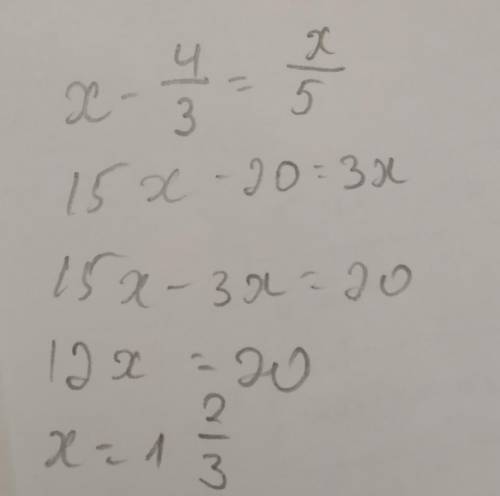 x - 4/3 = x/5
15x - 20 = 3x
15x - 3x = 20
12x = 20
x = 1 2/3